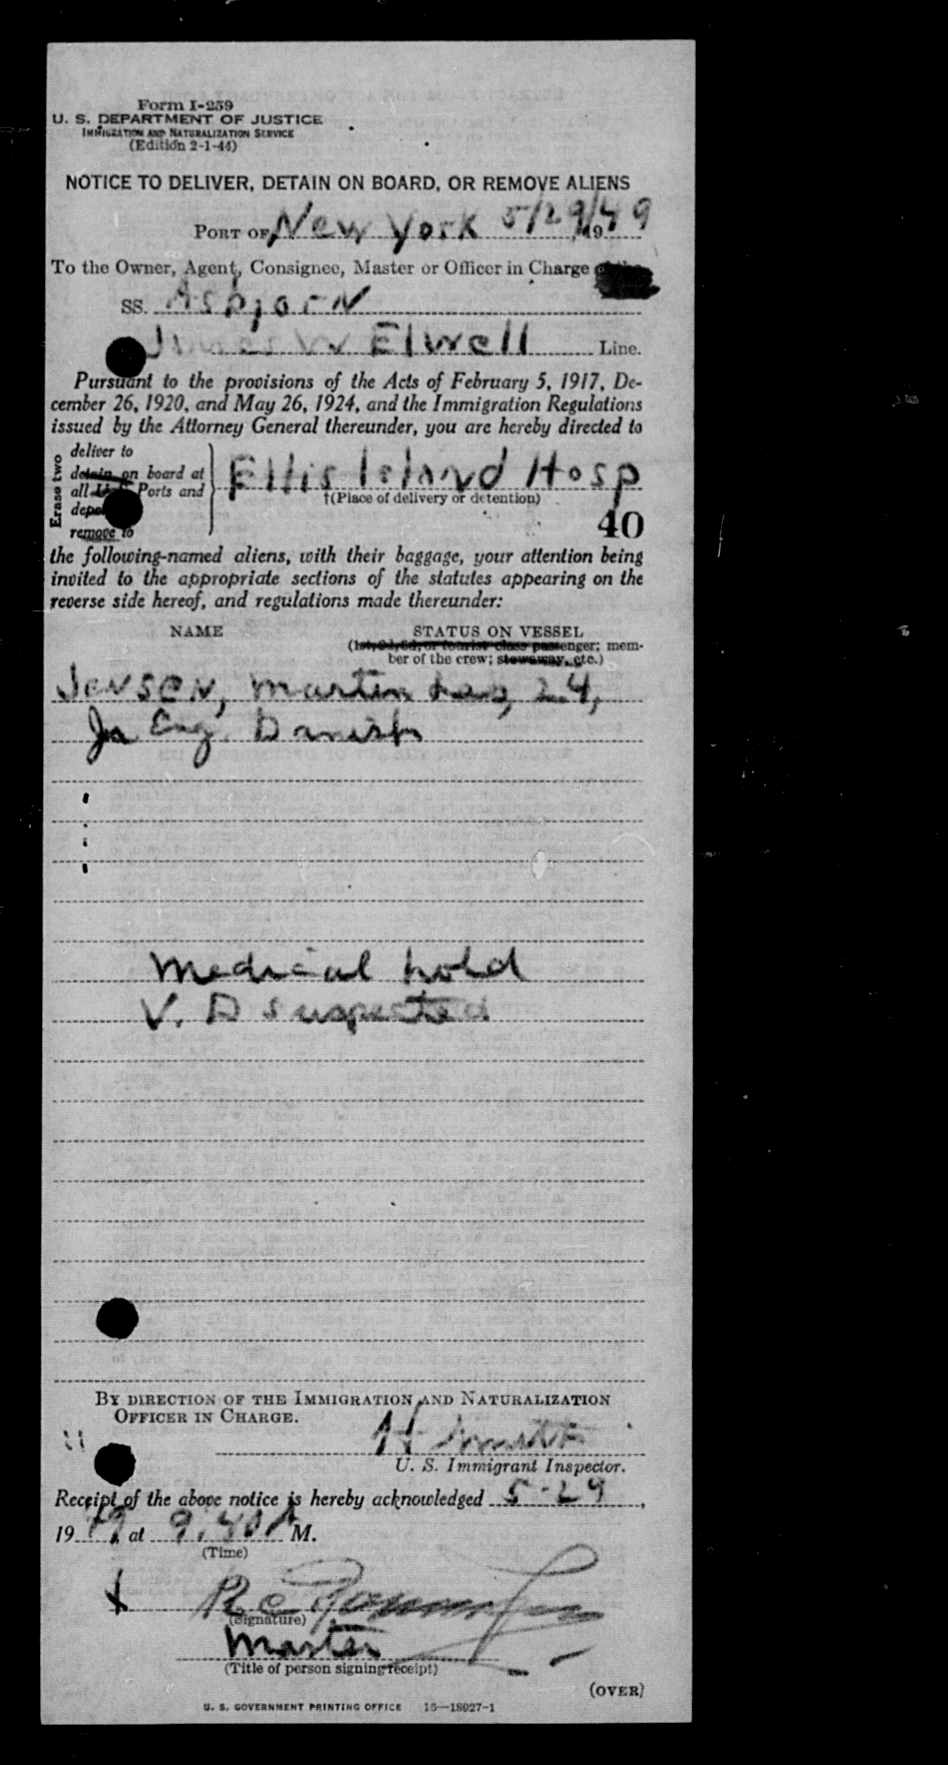 Form I-259
U. S. DEPARTMENT OF JUSTICE
IMMIGRATION AND NATURALIZATION SERVICE
(Edition 2-1-44)
NOTICE TO DELIVER, DETAIN ON BOARD, OR REMOVE ALIENS
PORT OF New York 5/29/49, 19
To the Owner, Agent, Consignee, Master or Officer in Charge
SS. Asbjorn
James W Elwell Line.
Pursuant to the provisions of the Acts of February 5, 1917, De-
cember 26, 1920, and May 26, 1924, and the Immigration Regulations
issued by the Attorney General thereunder, you are hereby directed to
Erase two
deliver to
detain on board at
all Ports and
remove to
Ellis Island Hosp
†(Place of delivery or detention)
40
the following-named aliens, with their baggage, your attention being
invited to the appropriate sections of the statutes appearing on the
reverse side hereof, and regulations made thereunder:
NAME STATUS ON VESSEL
(1st, 2d, 3d, or tourist class passenger; mem-
ber of the crew; stowaway, etc.)
Jensen, Martin 24,
Jr Eng. Danish
Medical hold
V. D suspected
BY DIRECTION OF THE IMMIGRATION AND NATURALIZATION
OFFICER IN CHARGE.
H
U. S. Immigrant Inspector.
Receipt of the above notice is hereby acknowledged 5-29,
1949, at 9:40 A M.
(Time)
R C
(Signature)
Master
(Title of person signing receipt)
(OVER)
U. S. GOVERNMENT PRINTING OFFICE 16—18027-1